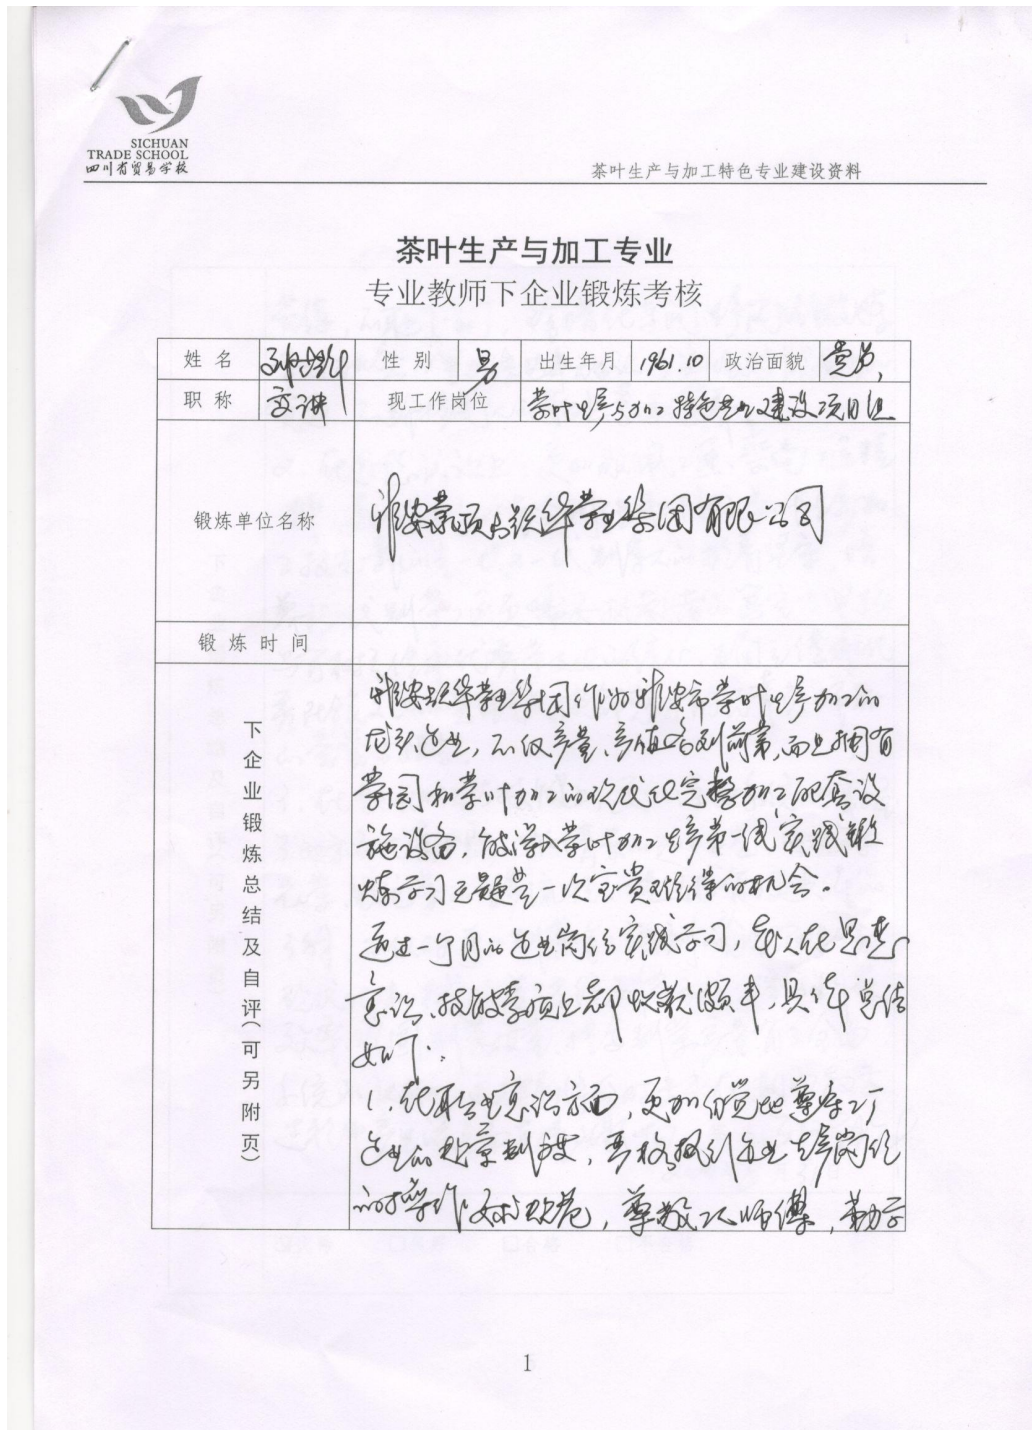 SICHUAN
TRADE SCHOOL
四川省贸易学校
茶叶生产与加工特色专业建设资料
茶叶生产与加工专业
专业教师下企业锻炼考核
姓 名 性 别 男 出生年月 1961.10 政治面貌 党员
职 称 高讲 现工作岗位 茶叶生产与加工特色专业建设项目组
锻炼单位名称 雅安蒙顶山跃华茶业集团有限公司
锻 炼 时 间
下企业锻炼总结及自评(可另附页)
雅安跃华茶业集团作为雅安市茶叶生产加工的
龙头企业,不仅产量、产值名列前茅,而且拥有
茶园和茶叶加工的现代化完整加工配套设
施设备,能深入茶叶加工生产第一线实践锻
炼学习无疑是一次宝贵难得的机会。
通过一个月的企业岗位实践学习,本人在思想
意识、技能素质上都收获颇丰,具体总结
如下:
1、在职业意识方面,更加自觉地尊守工厂
企业的规章制度,严格执行企业生产岗位
的操作技术规范,尊敬工人师傅,勤学
1